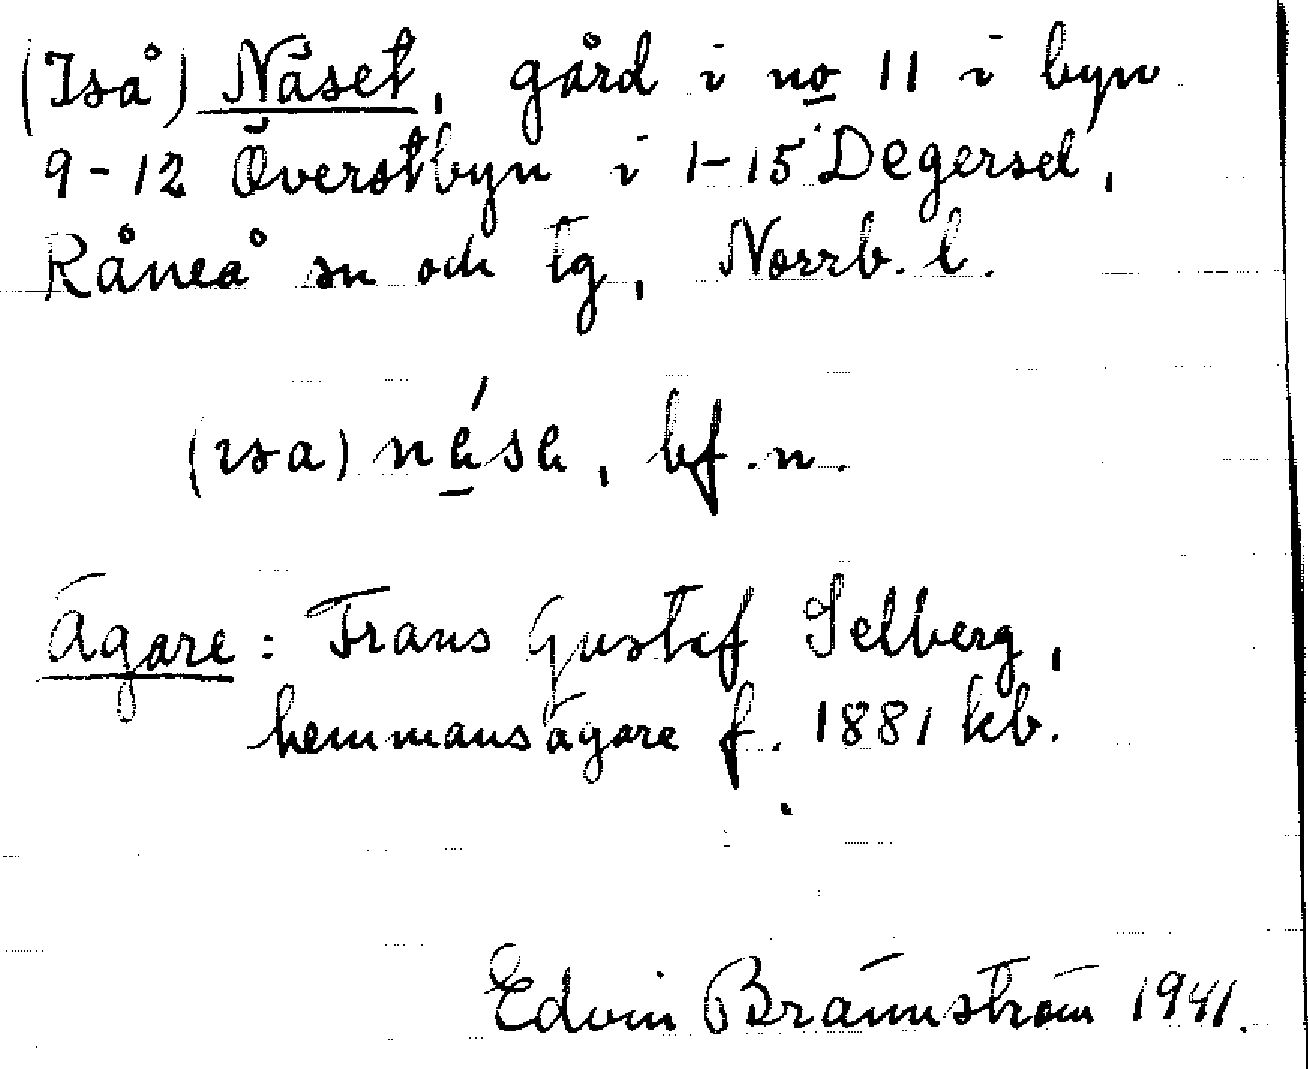 (Iså) Näset, gård i no 11 i byn
9-12 Överstbyn i 1-15 Degersel,
Råneå sn och tg, Norrb. l.
(ısa) , bf. n.
Ägare: Frans Gustaf Selberg,
hemmansägare f. 1881 kb.
Edvin Brännström 1941.